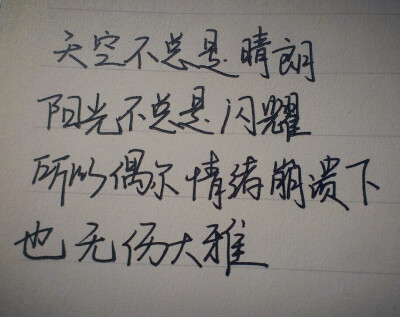 天空不总是晴朗
阳光不总是闪耀
所以偶尔情绪崩溃下
也无伤大雅